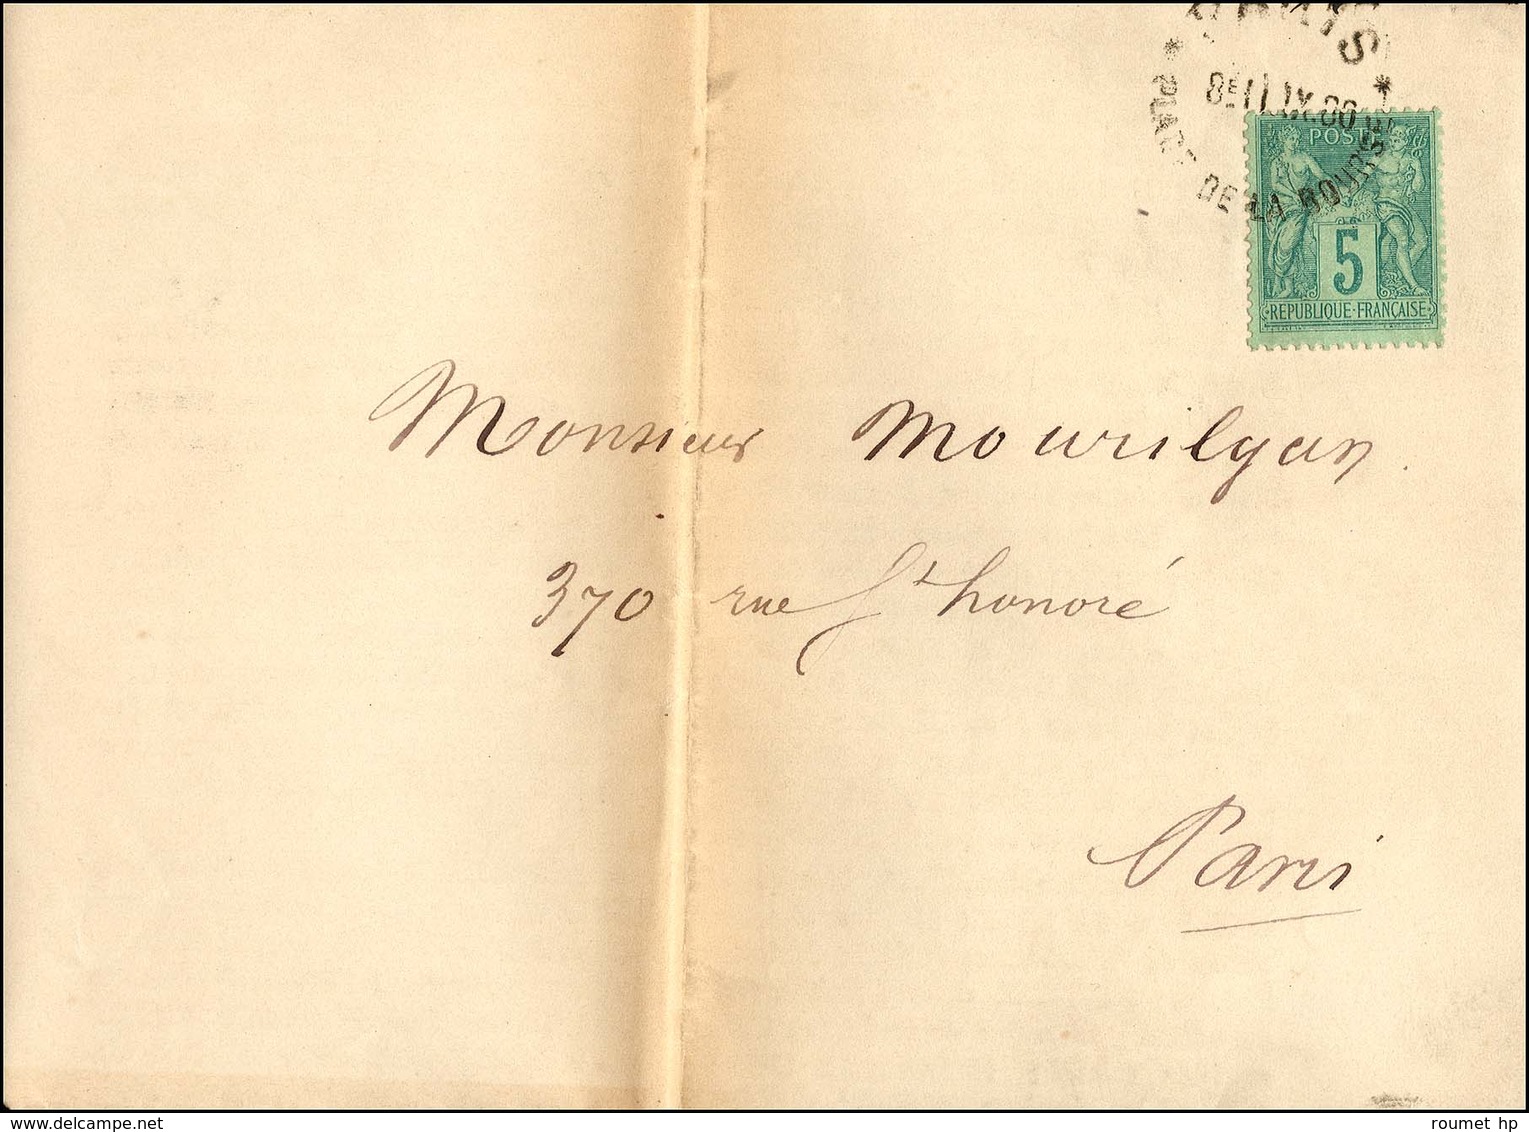 PARIS
8E 11 IX. 80
PLACE DE LA BOURSE
POSTE
5
REPUBLIQUE·FRANÇAISE
Monsieur Mourilyan.
370 rue St honoré
Paris
delcampe.net
roumet hp